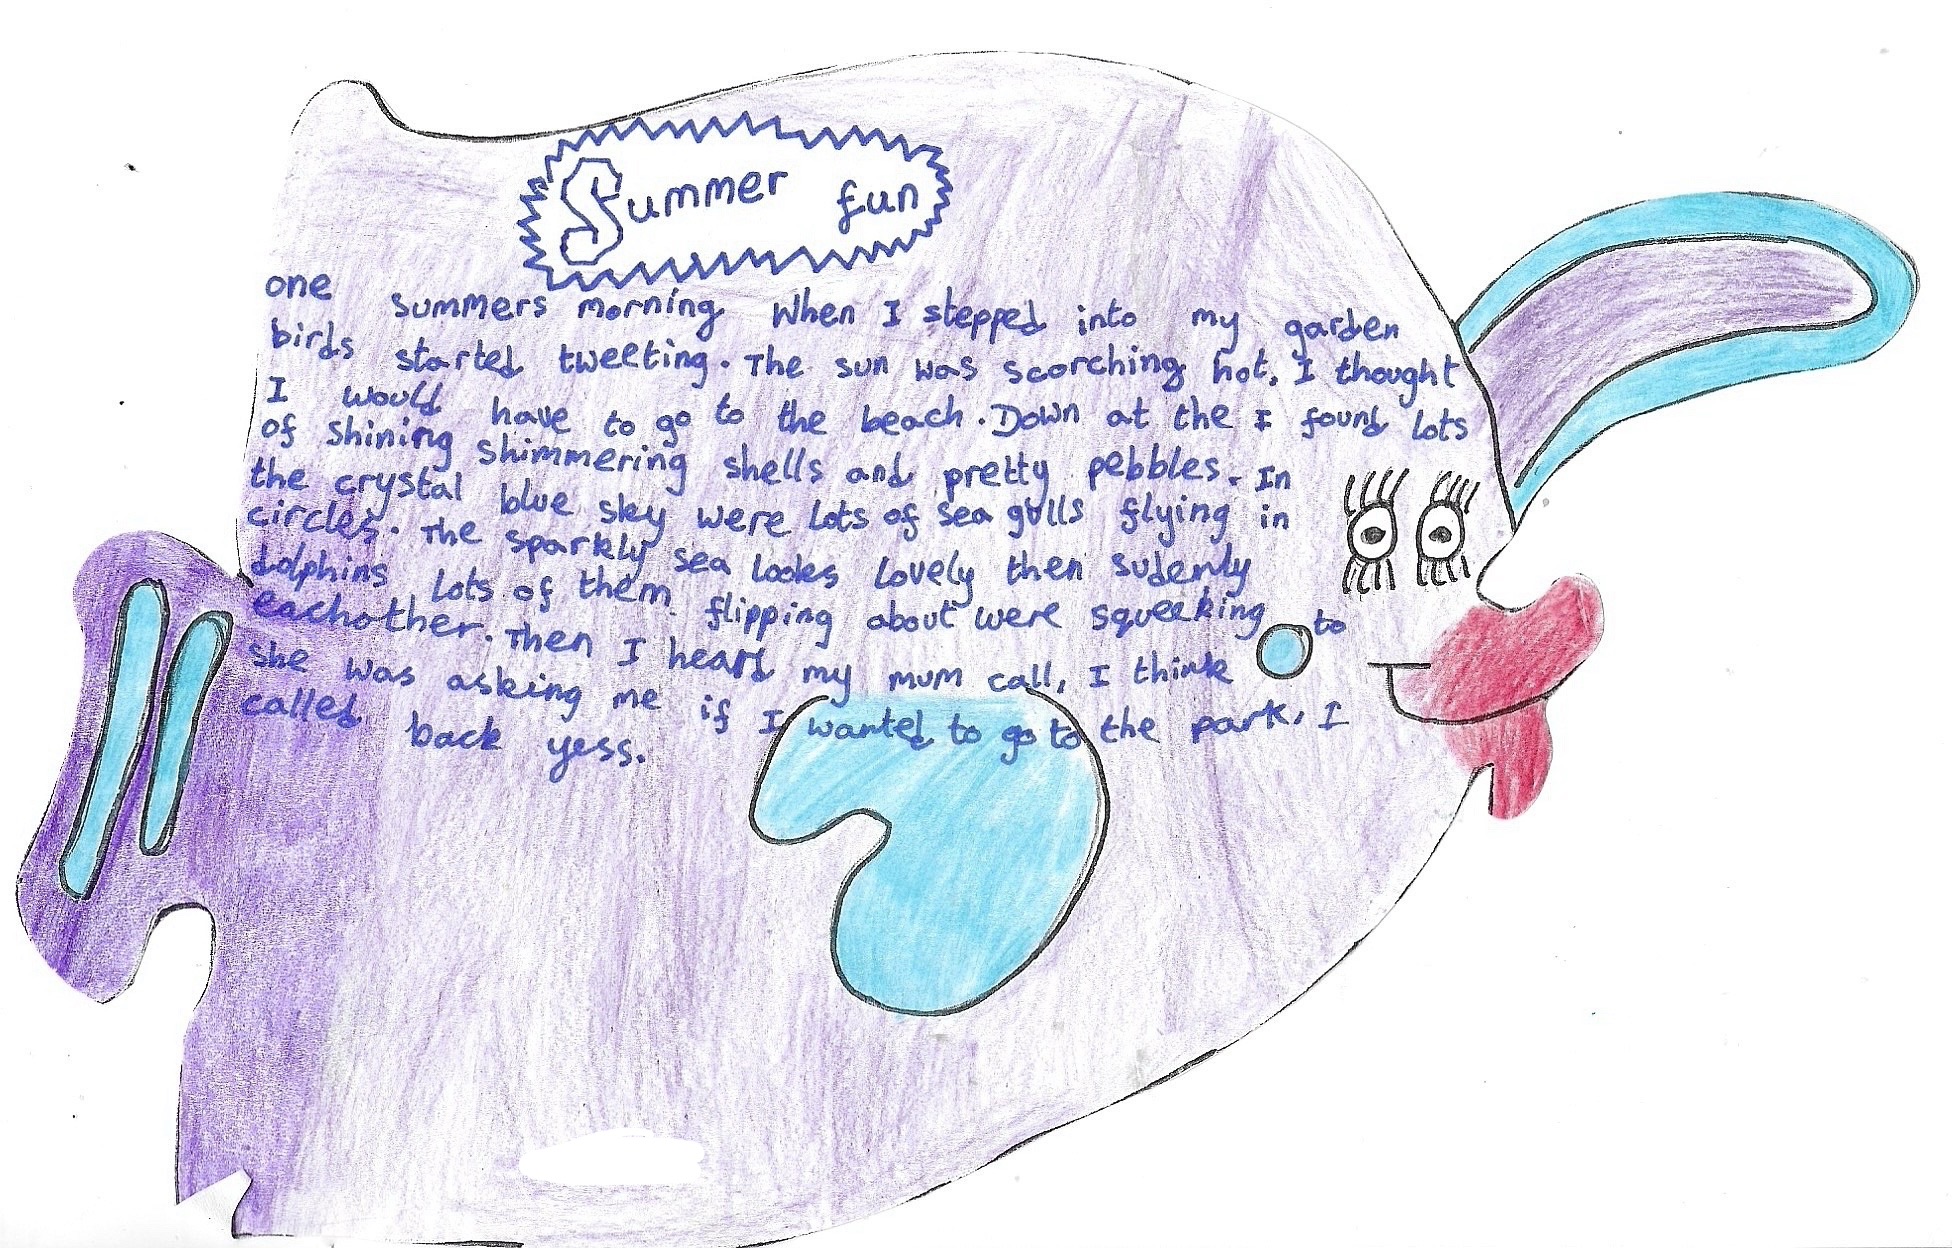 Summer fun
one summers morning When I stepped into my garden
birds started tweeting. The sun was scorching hot, I thought
I would have to go to the beach. Down at the I found lots
of shining shimmering shells and pretty pebbles. In
the crystal blue sky were lots of sea gulls flying in
circles. The sparkly sea looks lovely then sudenly
dolphins lots of them flipping about were squeeking to
eachother. Then I heard my mum call, I think
she was asking me if I wanted to go to the park, I
called back yess.